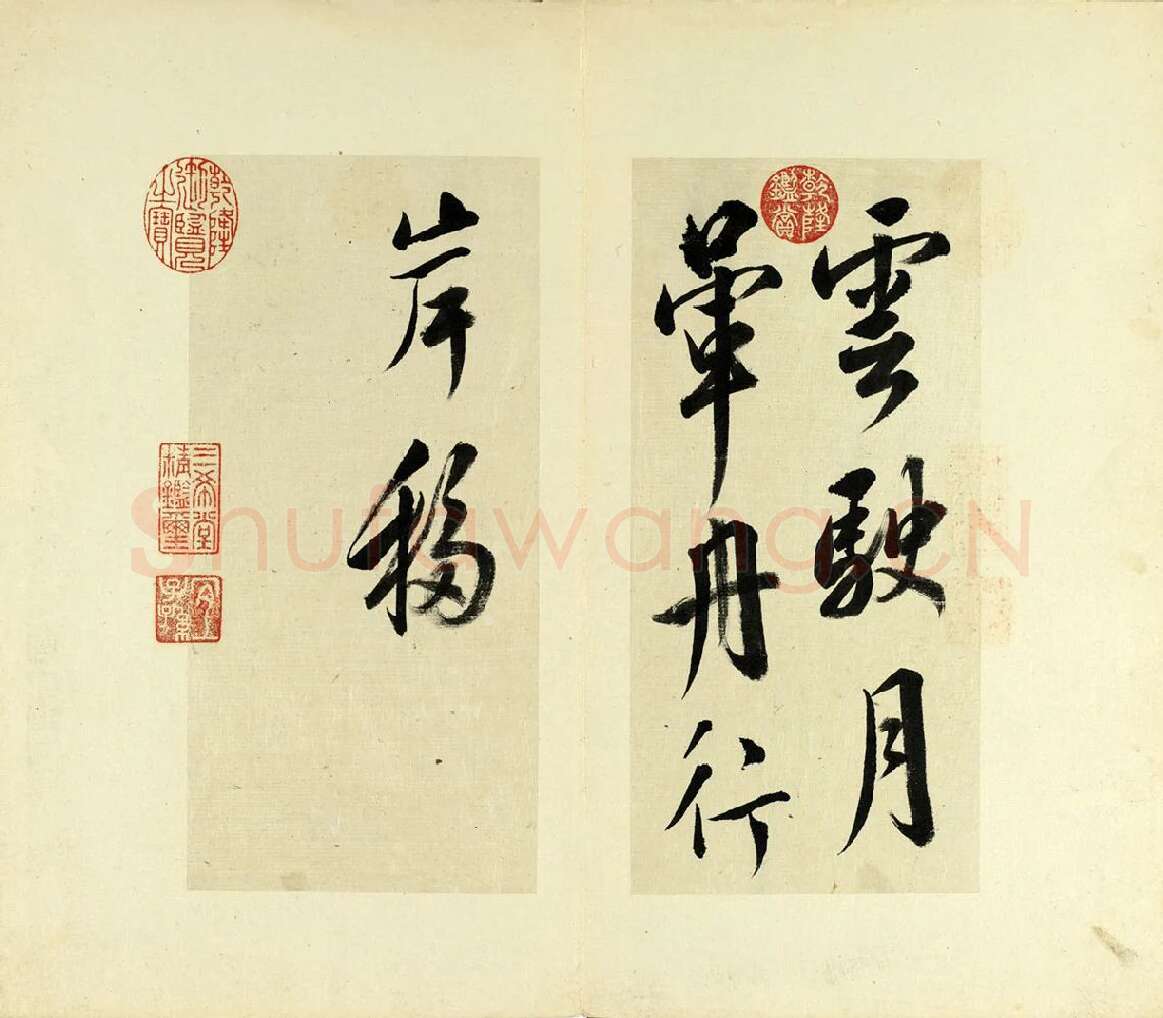 雲駛月
暈舟行
岸移
乾隆鑑賞
乾隆御覽之寶
三希堂精鑑璽
宜子孫
Shufawang.CN